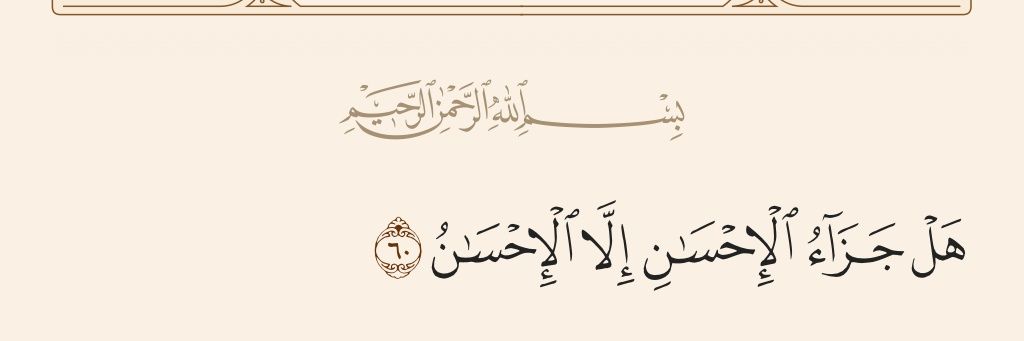 بِسْمِ ٱللَّهِ ٱلرَّحْمَٰنِ ٱلرَّحِيمِ
هَلْ جَزَآءُ ٱلْإِحْسَـٰنِ إِلَّا ٱلْإِحْسَـٰنُ ٦٠